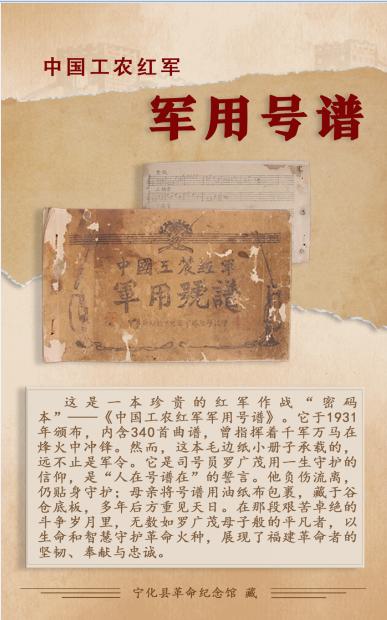 中国工农红军
军用号谱
中國工农紅軍
軍用號譜
这是一本珍贵的红军作战“密码
本”——《中国工农红军军用号谱》。它于1931
年颁布，内含340首曲谱，曾指挥着千军万马在
烽火中冲锋。然而，这本毛边纸小册子承载的，
远不止是军令。它是司号员罗广茂用一生守护的
信仰，是“人在号谱在”的誓言。他负伤流离，
仍贴身守护；母亲将号谱用油纸布包裹，藏于谷
仓底板，多年后方重见天日。在那段艰苦卓绝的
斗争岁月里，无数如罗广茂母子般的平凡者，以
生命和智慧守护革命火种，展现了福建革命者的
坚韧、奉献与忠诚。
宁化县革命纪念馆 藏